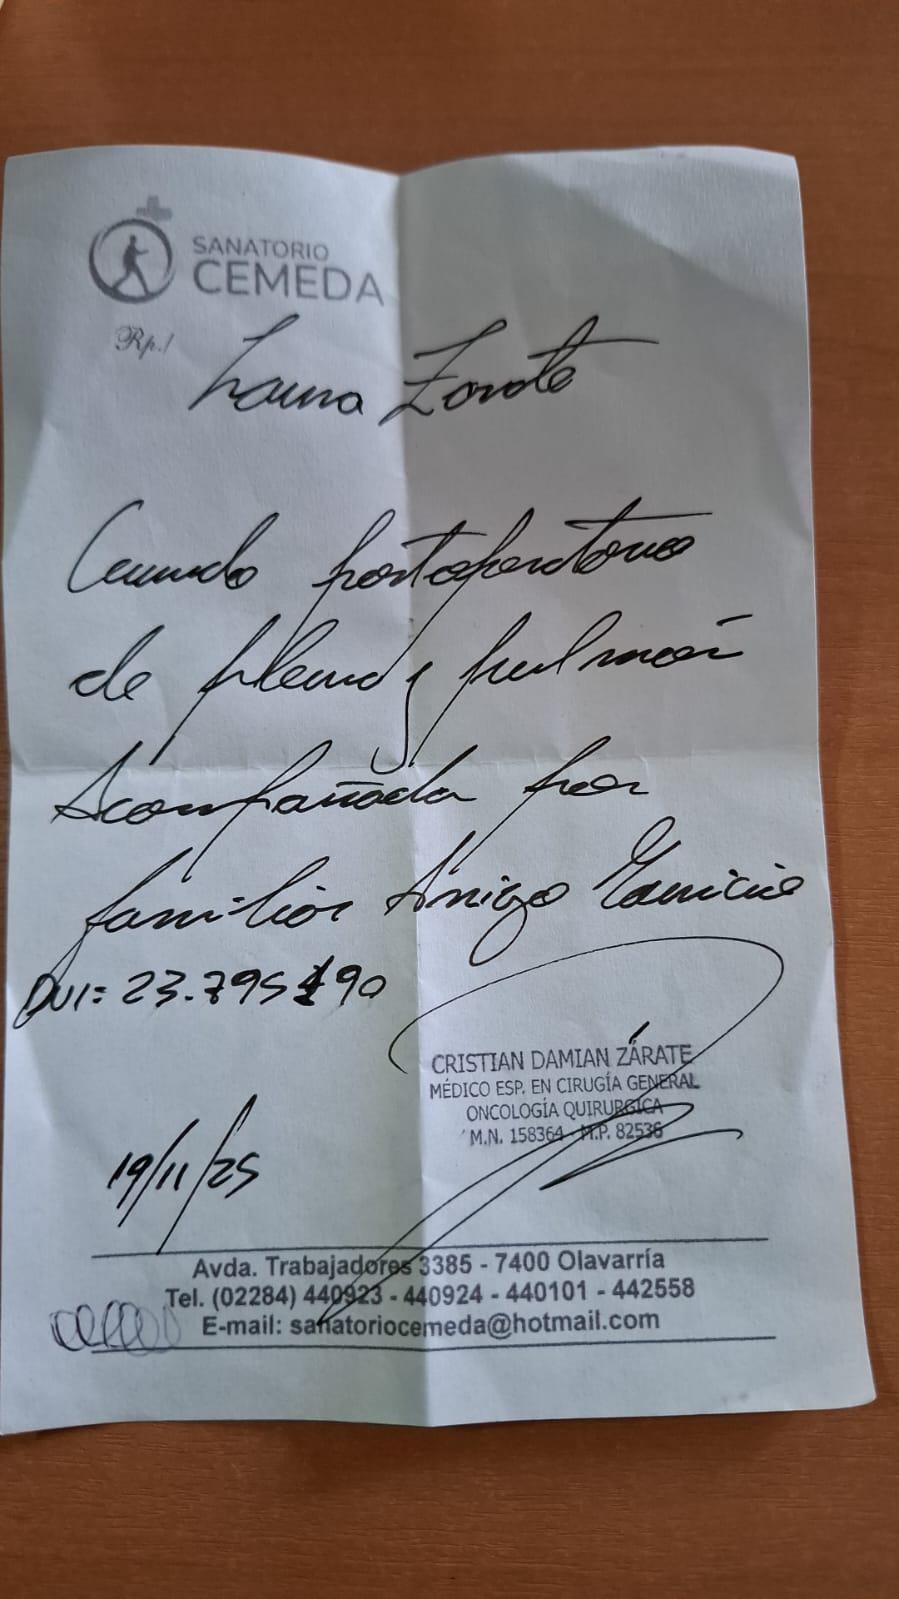 SANATORIO
CEMEDA
Rp./
Laura Zarate
Cursando postoperatorio
de pleura y pulmón
Acompañada por
familiar Mauricio
DNI: 23.795
CRISTIAN DAMIAN ZÁRATE
MÉDICO ESP. EN CIRUGÍA GENERAL
ONCOLOGÍA QUIRURGICA
M.N. 158364 - M.P. 82536
19/11/25
Avda. Trabajadores 3385 - 7400 Olavarría
Tel. (02284) 440923 - 440924 - 440101 - 442558
E-mail: sanatoriocemeda@hotmail.com